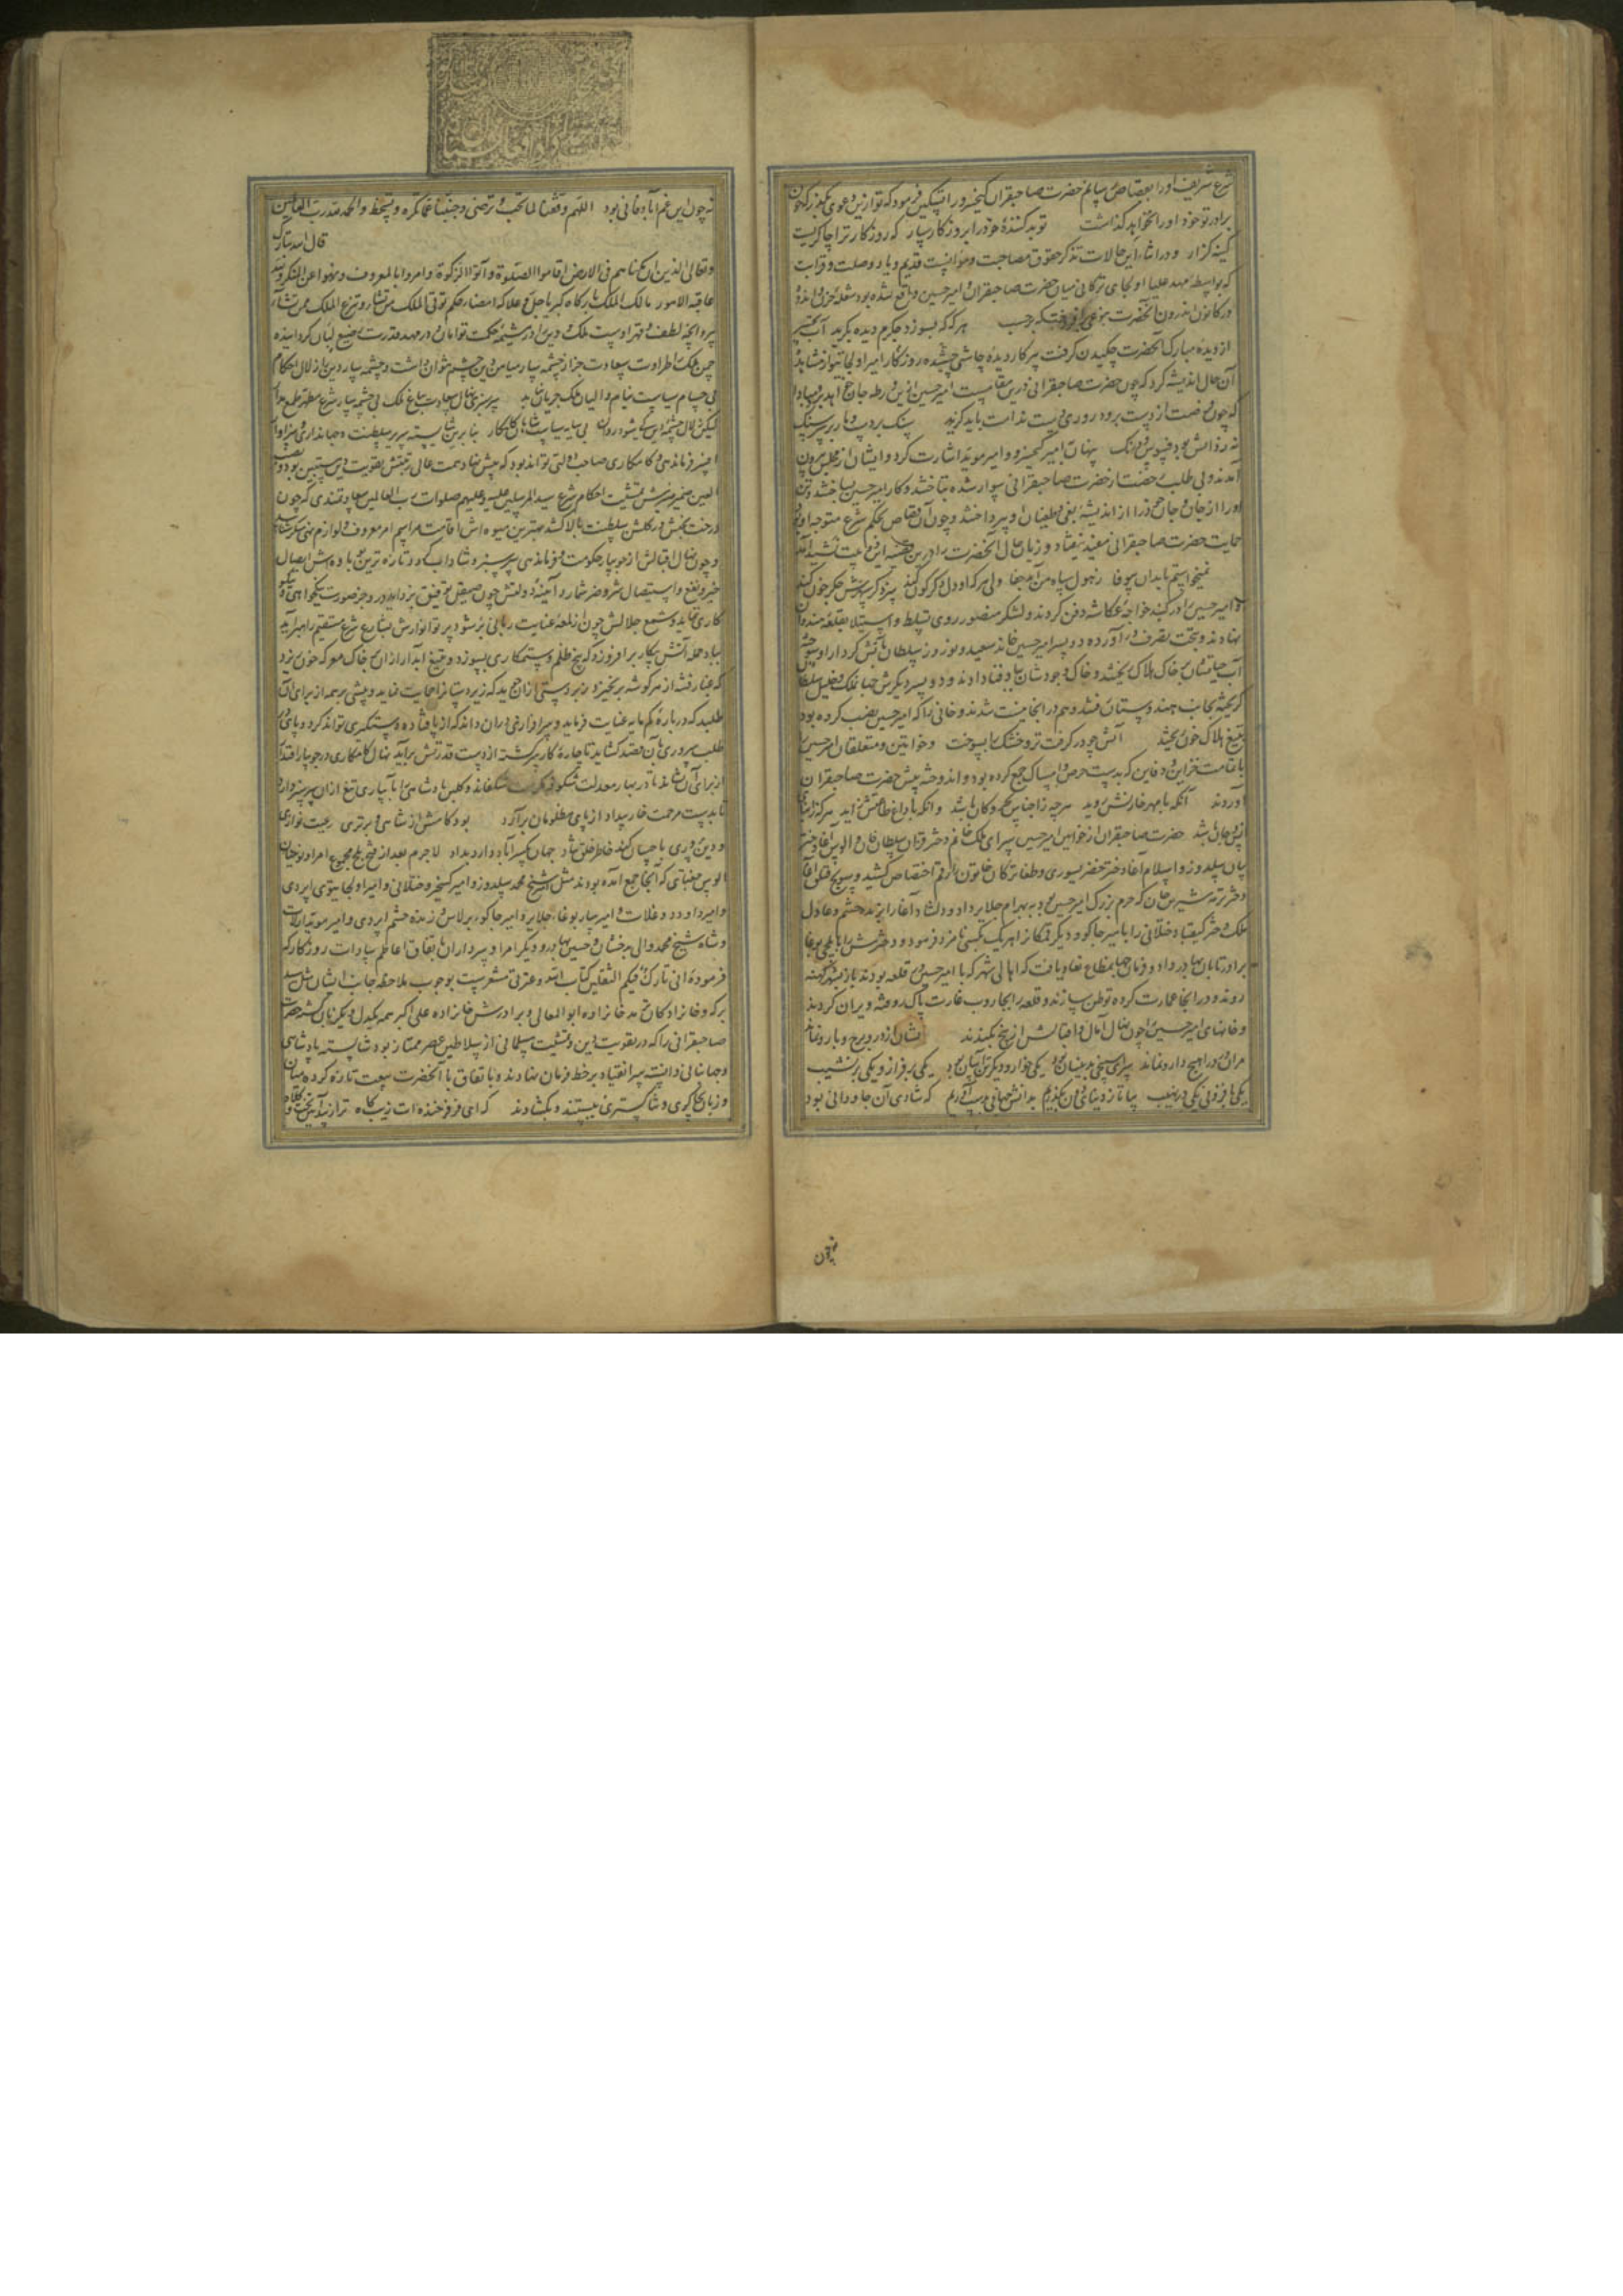 شرع شریف اورا بقصاص رسانم حضرت صاحبقران کیخسرو را تسکین فرمود که تو ازین دعوی بگذر که خون
برادر تو خود اورا نخواهد گذاشت تو بد کننده خود را بروزگار سپار که روزگار ترا چاکریست
کینه گزار و در اثنای این حالات تذکر حقوق مصاحبت و موانست قدیم و یاد وصلت و قرابت
که بواسطه مهد علیا اولجای ترکان میان حضرت صاحبقران و امیر حسین واقع شده بود شعله حزن و اندوه
در کانون اندرون آنحضرت بنوعی که برحسب هر که که بسوزد جگرم دیده بگرید آب
از دیده مبارک آنحضرت چکیدن گرفت پیر کار دیده چاشنی چشیده روزگار امیر اولجایتو از مشاهده
آن حال اندیشه کرد که چون حضرت صاحبقرانی درین مقامست امیر حسین ازین ورطه جان خواهد برد مبادا
که چون فرصت از دست برود روزی پشت ندامت باید گزید سنگ بر دست و مار بر سر سنگ
نه ز دانش بود فسوس و درنگ پنهان بامیر کیخسرو و امیر موید اشارت کرد و ایشان از مجلس بیرون
آمدند و بی طلب رخصت از حضرت صاحبقرانی سوار شده بتاختند و کار امیر حسین بساختند و تن
اورا از جان و جان خود را از اندیشه بغی و طغیان او پرداختند و چون آن قصاص بحکم شرع متوجه او بود
حمایت حضرت صاحبقرانی مفید نیفتاد و زبان حال آنحضرت را درین قضیه این بیت
نمیخواستم بدان بی وفا ز هول سپاه من آید جفا ولی هر که او دل دگرگون کند
و امیر حسین را در گنبد خواجه عکاشه دفن کردند و لشکر منصور روی تسلط و استیلا بقلعه هندوان
نهادند و بتحت تصرف درآورده دو پسر امیر حسین خاند سعید و نوروز سلطان بآتش کردار او سوخته
آب حیاتشان بر خاک هلاک بریختند و خاک وجودشان بباد فنا دادند و دو پسر دیگرش جهانملک و خلیل سلطان
گریخته بجانب هندوستان افتادند و هم در آنجا نیست شدند و خانی را که امیر حسین نصب کرده بود
بتیغ هلاک خون بریختند آتش چو در گرفت تر و خشک را بسوخت و خواتین و متعلقان امیر حسین را
با تمامت خزاین و دفاین که بدست حرص و امساک جمع کرده بود و اندوخته پیش حضرت صاحبقران
آوردند آنکه با مهر خازنش روید هر چه ز اجناس بحر و کان باشد وانکه با داغ طاعتش زاید هر که ز ابنای
انس و جان باشد حضرت صاحبقران از خواتین امیر حسین سرای ملک خانم دختر قزان سلطان خان و الوس آغا دختر
بیان سلدوز و اسلام آغا دختر خضر یسوری و طغای ترکان خاتون را رقم اختصاص کشید و سونج قتلغ آغا
دختر ترمه شیرین خان که حرم بزرگ امیر حسین بود به بهرام جلایر داد و دلشاد آغا را بزنده حشم و عادل
ملک دختر کیقباد ختلانی را بامیر جاکو و دیگر قمکان را هریک بکسی نامزد فرمود و دخترش را بایلچی بوغا
برادر تابان بهادر داد و فرمان جهانمطاع نفاذ یافت که اهالی شهر که با امیر حسین در قلعه بودند باز بشهر کهنه
روند و در آنجا عمارت کرده توطن سازند و قلعه را بجاروب غارت پاک روفته ویران کردند
و خانهای امیر حسین را چون نهال آمال و اقبالش از بیخ بکندند نشان از در و برج و بارو نماند
مران دور را هیچ دارو نماند سرای سپنجی بدینسان بود یکی خوار و دیگر تن آسان بود یکی بر فراز و یکی بر نشیب
یکی با فزونی یکی در نهیب بیا تا ز دنیای دون بگذریم بدانش جهانی بدست آوریم که شادی آن جاودانی بود
نه چون
نه چون این غم آباد فانی بود اللهم وفقنا لما تحب و ترضی و جنبنا عما تکره و تسخط والحمد لله رب العالمین
قال الله تبارک
و تعالی الذین ان مکناهم فی الارض اقاموا الصلوة و آتوا الزکوة و امروا بالمعروف و نهوا عن المنکر ولله
عاقبة الامور مالک الملک بارگاه کبریا جل و علا که امضای حکم توتی الملک من تشاء و تنزع الملک ممن تشاء
پروانچه لطف و قهر اوست ملک و دین را در مشیمه حکمت توامان و در مهد قدرت رضیع لبان گردانیده
چمن ملک را طراوت سعادت جز از چشمه سار میامن دین چشم نتوان داشت و چشمه سار دین را زلال احکام
بی حسام سیاست نیام والیان ملک جریان نیابد سرسبزی نهال سعادت بباغ ملک بی چشمه سار شرع مطهر طمع مدار
لیکن زلال چشمه دین کی شود روان بی سایه سیاست شاهان کامکار بنابرین شایسته سریر سلطنت و جهانداری و سزاوار
افسر فرماندهی و کامکاری صاحب دولتی تواند بود که پیش نهاد همت عالی رتبتش تقویت دین مستبین بود و نصب
العین ضمیر منیرش تمشیت احکام شرع سید المرسلین علیه و علیهم صلوات رب العالمین سعادتمندی که چون
درخت بختش در گلشن سلطنت بالا کشد بهترین میوه اش اقامت مراسم امر معروف و لوازم نهی منکر شناسد
و چون نهال اقبالش از جویبار حکومت و فرماندهی سرسبز و شاداب گردد تازه ترین باده اش ایصال
خیر و نفع و استیصال شر و ضر شمارد آینه دولتش چون بصیقل توفیق بزداید در و جز صورت نیکخواهی و نیکو
کاری ننماید و شمع جلالش چون از لمعه عنایت ربانی برشود پرتو انوارش بشارع شرع مستقیم راهبر آید
بباد حمله آتش پیکار برافروزد که بیخ ظلم و ستمکاری بسوزد و بتیغ آبدار از ان بر خاک معرکه خون ریزد
که غبار فتنه از هر گوشه برنخیزد زبردستی از ان جوید که زیردستان را حمایت نماید و پیشی بر همه از برای آن
طلبد که درباره کم مایه عنایت فرماید و سرافرازی در ان داند که از پا افتاده دستگیری تواند کرد و پای در
طلب سروری بآن قصد گشاید تا چاره کار سرگشته از دست قدرتش برآید نهال کامکاری در جویبار اقتدار
از برای آن نشاند تا در بهار معدلت شکوفه مکرمت شکفاند و گلبن پادشاهی را بآبیاری تیغ از ان سرسبز دارد
تا بدست مرحمت خار بیداد از پای مظلومان برآرد بود کامش از شاهی و برتری رعیت نوازی
و دین پروری باحسان کند خاطر خلق شاد جهان یکسر آباد دارد بداد لاجرم بعد از فتح بلخ مجموع امرا و نوئینان
الوس جغتای که آنجا جمع آمده بودند مثل شیخ محمد سلدوز و امیر کیخسرو ختلانی و امیر اولجایتوی اپردی
و امیر داود دوغلات و امیر ساربوغا جلایر و امیر جاکو برلاس و زنده حشم اپردی و امیر موید ارلات
و شاه شیخ محمد والی بدخشان و حسین بهادر و دیگر امرا و سرداران باتفاق اعاظم سادات روزگار که
فرموده انی تارک فیکم الثقلین کتاب الله و عترتی مشعرست بوجوب ملاحظه جانب ایشان مثل سید
برکه و خانزادگان ترمد خانزاده ابو المعالی و برادرش خانزاده علی اکبر همه یکدل و یکزبان گشته حضرت
صاحبقرانی را که در تقویت دین و تمشیت مسلمانی از سلاطین عصر ممتاز بود شایسته پادشاهی
و جهانبانی دانسته سر انقیاد بر خط فرمان نهادند و باتفاق با آنحضرت بیعت تازه کرده میان
و زبان بچاکری و ثناگستری ببستند و بگشادند که ای فر فرخنده ات زیب گاه ترا زیبد آیین تخت و کلاه